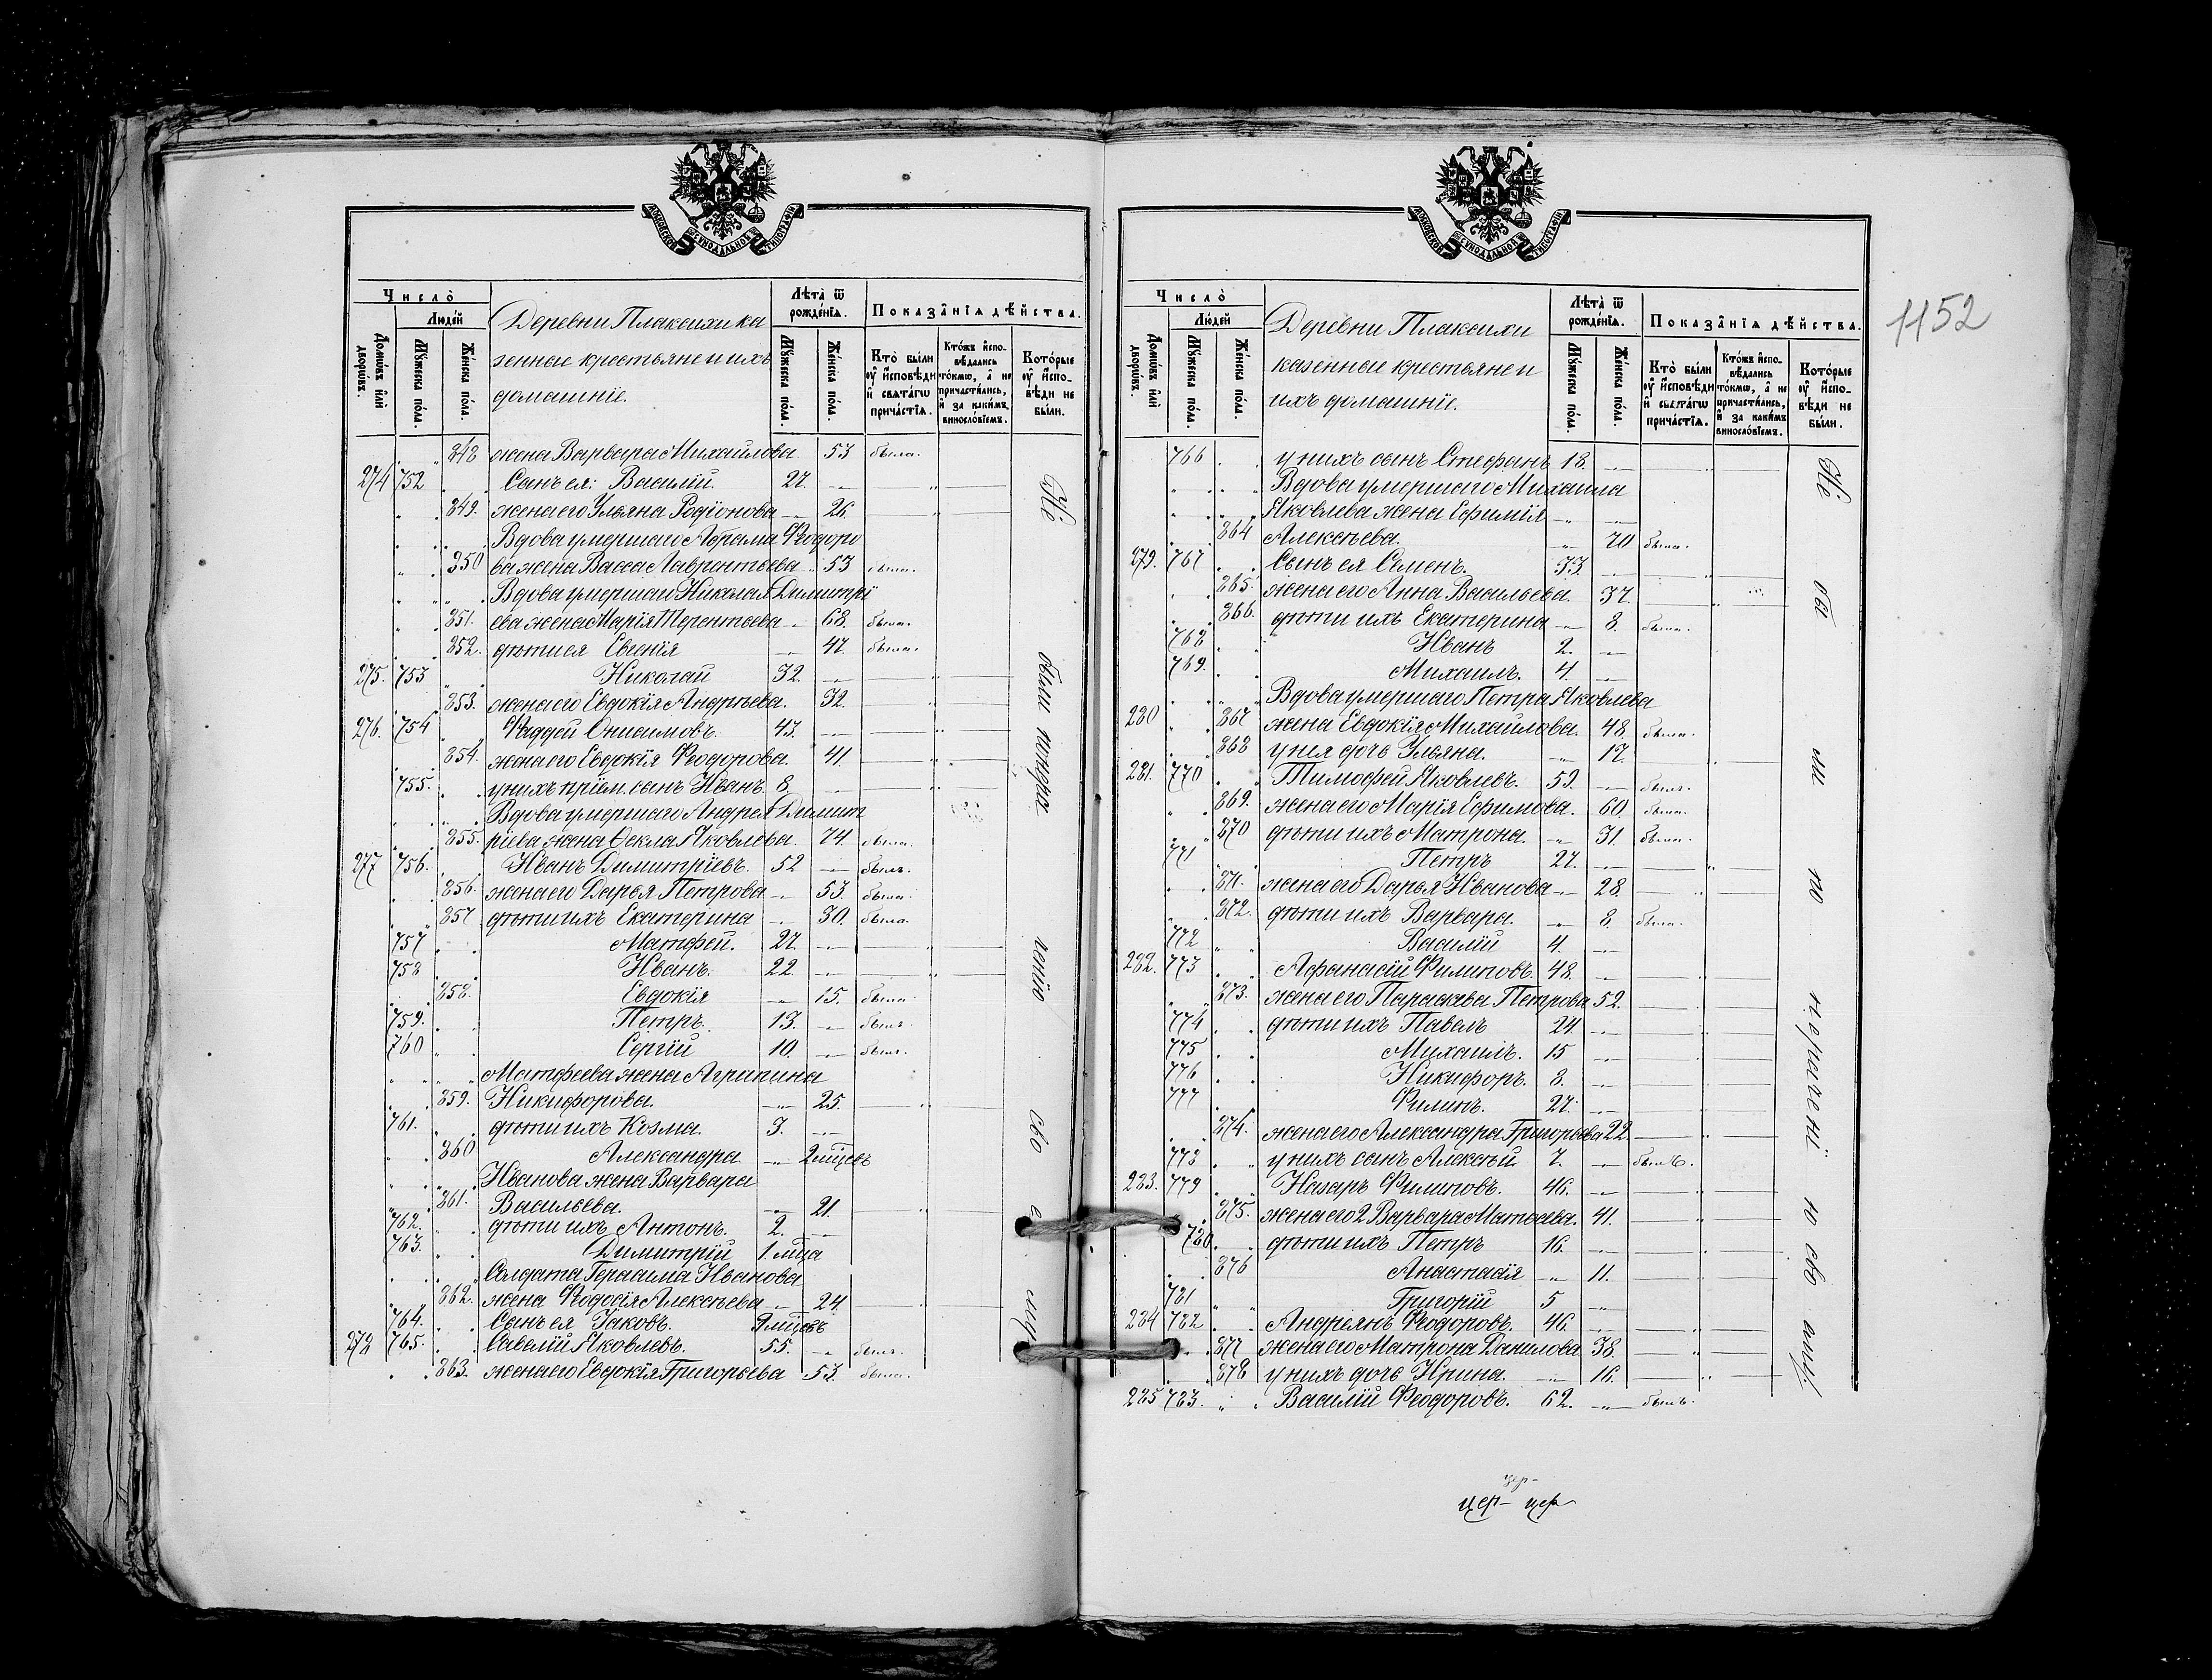 МОСКОВСКОЙ СѴНОДАЛЬНОЙ ТИПОГРАФІИ
Число̀
Домѡ́въ и҆лѝ дворѡ́въ.
Люде́й
Мꙋ́жеска по́ла.
Же́нска по́ла.
Деревни Плаксихи ка
зенные крестьяне и ихъ
домашніе.
Лѣта̀ ѿ рожде́нїѧ.
Мꙋ́жеска по́ла.
Же́нска по́ла.
Показа̂нїѧ дѣ́йства.
Кто̀ бы́ли оу҆ и҆сповѣ́ди и҆ свѧта́гѡ прича́стїѧ.
Кто́жъ и҆сповѣ́дались то́кмѡ, а҆ не причасти́лись, и҆ за каки́мъ винослові́емъ.
Кото́рые оу҆ и҆сповѣ́ди не бы́ли.
848 жена Варвара Михайлова 53 была.
274 752 Сынъ ея: Василій. 27.
849. жена его Ульяна Родіонова 26.
Вдова умершаго Абрама Ѳеодоро
850 ва жена Васса Лаврентьева 53 была.
Вдова умершаго Николая Димитрі
851. ева жена Марія Терентьева 68. была.
852. дѣти ея Евгенія 47. была.
275. 753 Николай 32.
853. жена его Евдокія Андреева. 32.
276. 754 Фаддей Онисимовъ. 43.
854. жена его Евдокія Ѳеодорова. 41.
755. у нихъ пріем. сынъ Иванъ 8.
Вдова умершаго Андрея Димит
855. ріева жена Ѳекла Яковлева. 74. была.
277 756. Иванъ Димитріевъ. 52 былъ.
856. жена его Дарья Петрова 53. была.
857 дѣти ихъ Екатерина 30. была.
757 Матфей. 27.
758 Иванъ. 22
858. Евдокія 15. была.
759. Петръ. 13. былъ.
760 Сергій 10. былъ.
Матфеева жена Агрипина
859. Никифорова. 25.
761. дѣти ихъ Козма. 3.
860 Александра 2 мѣсцевъ
Иванова жена Варвара
861. Васильева. 21.
762. дѣти ихъ Антонъ. 2.
763. Димитрій 1. мѣца
Солдата Герасима Иванова
862. жена Ѳеодосія Алексѣева 24.
764. Сынъ ея Іаковъ. мѣсцевъ
278 765. Савелій Яковлевъ. 55. былъ.
863. жена его Евдокія Григорьева 53. была.
Не были по нера чению сво ему
1152
МОСКОВСКОЙ СѴНОДАЛЬНОЙ ТИПОГРАФІИ
Число̀
Домѡ́въ и҆лѝ дворѡ́въ.
Люде́й
Мꙋ́жеска по́ла.
Же́нска по́ла.
Деревни Плаксихи
казенные крестьяне и
ихъ домашніе.
Лѣта̀ ѿ рожде́нїѧ.
Мꙋ́жеска по́ла.
Же́нска по́ла.
Показа̂нїѧ дѣ́йства.
Кто̀ бы́ли оу҆ и҆сповѣ́ди и҆ свѧта́гѡ прича́стїѧ.
Кто́жъ и҆сповѣ́дались то́кмѡ, а҆ не причасти́лись, и҆ за каки́мъ винослові́емъ.
Кото́рые оу҆ и҆сповѣ́ди не бы́ли.
766 у нихъ сынъ Стефанъ 18.
Вдова умершаго Михаила
Яковлева жена Ефимія
864 Алексѣева. 70 была.
279. 767 Сынъ ея Семенъ. 33.
865. жена его Анна Васильева. 37.
866. дѣти ихъ Екатерина 8. была.
768 Иванъ 2.
769. Михаилъ. 4.
Вдова умершаго Петра Яковлева
280 867 жена Евдокія Михайлова. 48. была.
868 у нея дочь Ульяна. 17.
281. 770 Тимофей Яковлевъ. 59. былъ.
869. жена его Марія Ефимова. 60. была.
870 дѣти ихъ Матрона. 31. была.
771 Петръ 27.
871. жена его Дарья Иванова 28.
872. дѣти ихъ Варвара. 8. была.
772 Василій 4.
282. 773 Афанасій Филиповъ. 48.
873. жена его Параскева Петрова 52.
774 дѣти ихъ Павелъ 24.
775 Михаилъ. 15
776 Никифоръ. 8.
777 Филипъ. 27.
874. жена его Александра Григорьева 22.
778 у нихъ сынъ Алексѣй. 7. былъ.
283. 779 Назаръ Филиповъ. 46.
875. жена его 2 Варвара Матвеева. 41.
780 дѣти ихъ Петръ 16.
876 Анастасія 11.
781 Григорій 5
284 782 Андреянъ Ѳеодоровъ. 46.
877 жена его Матрона Данилова 38.
878 у нихъ дочь Ирина. 16.
285 783. Василій Ѳеодоровъ. 62. былъ.
Не бы ли по нерачені ю сво ему
цер-
цер- цер